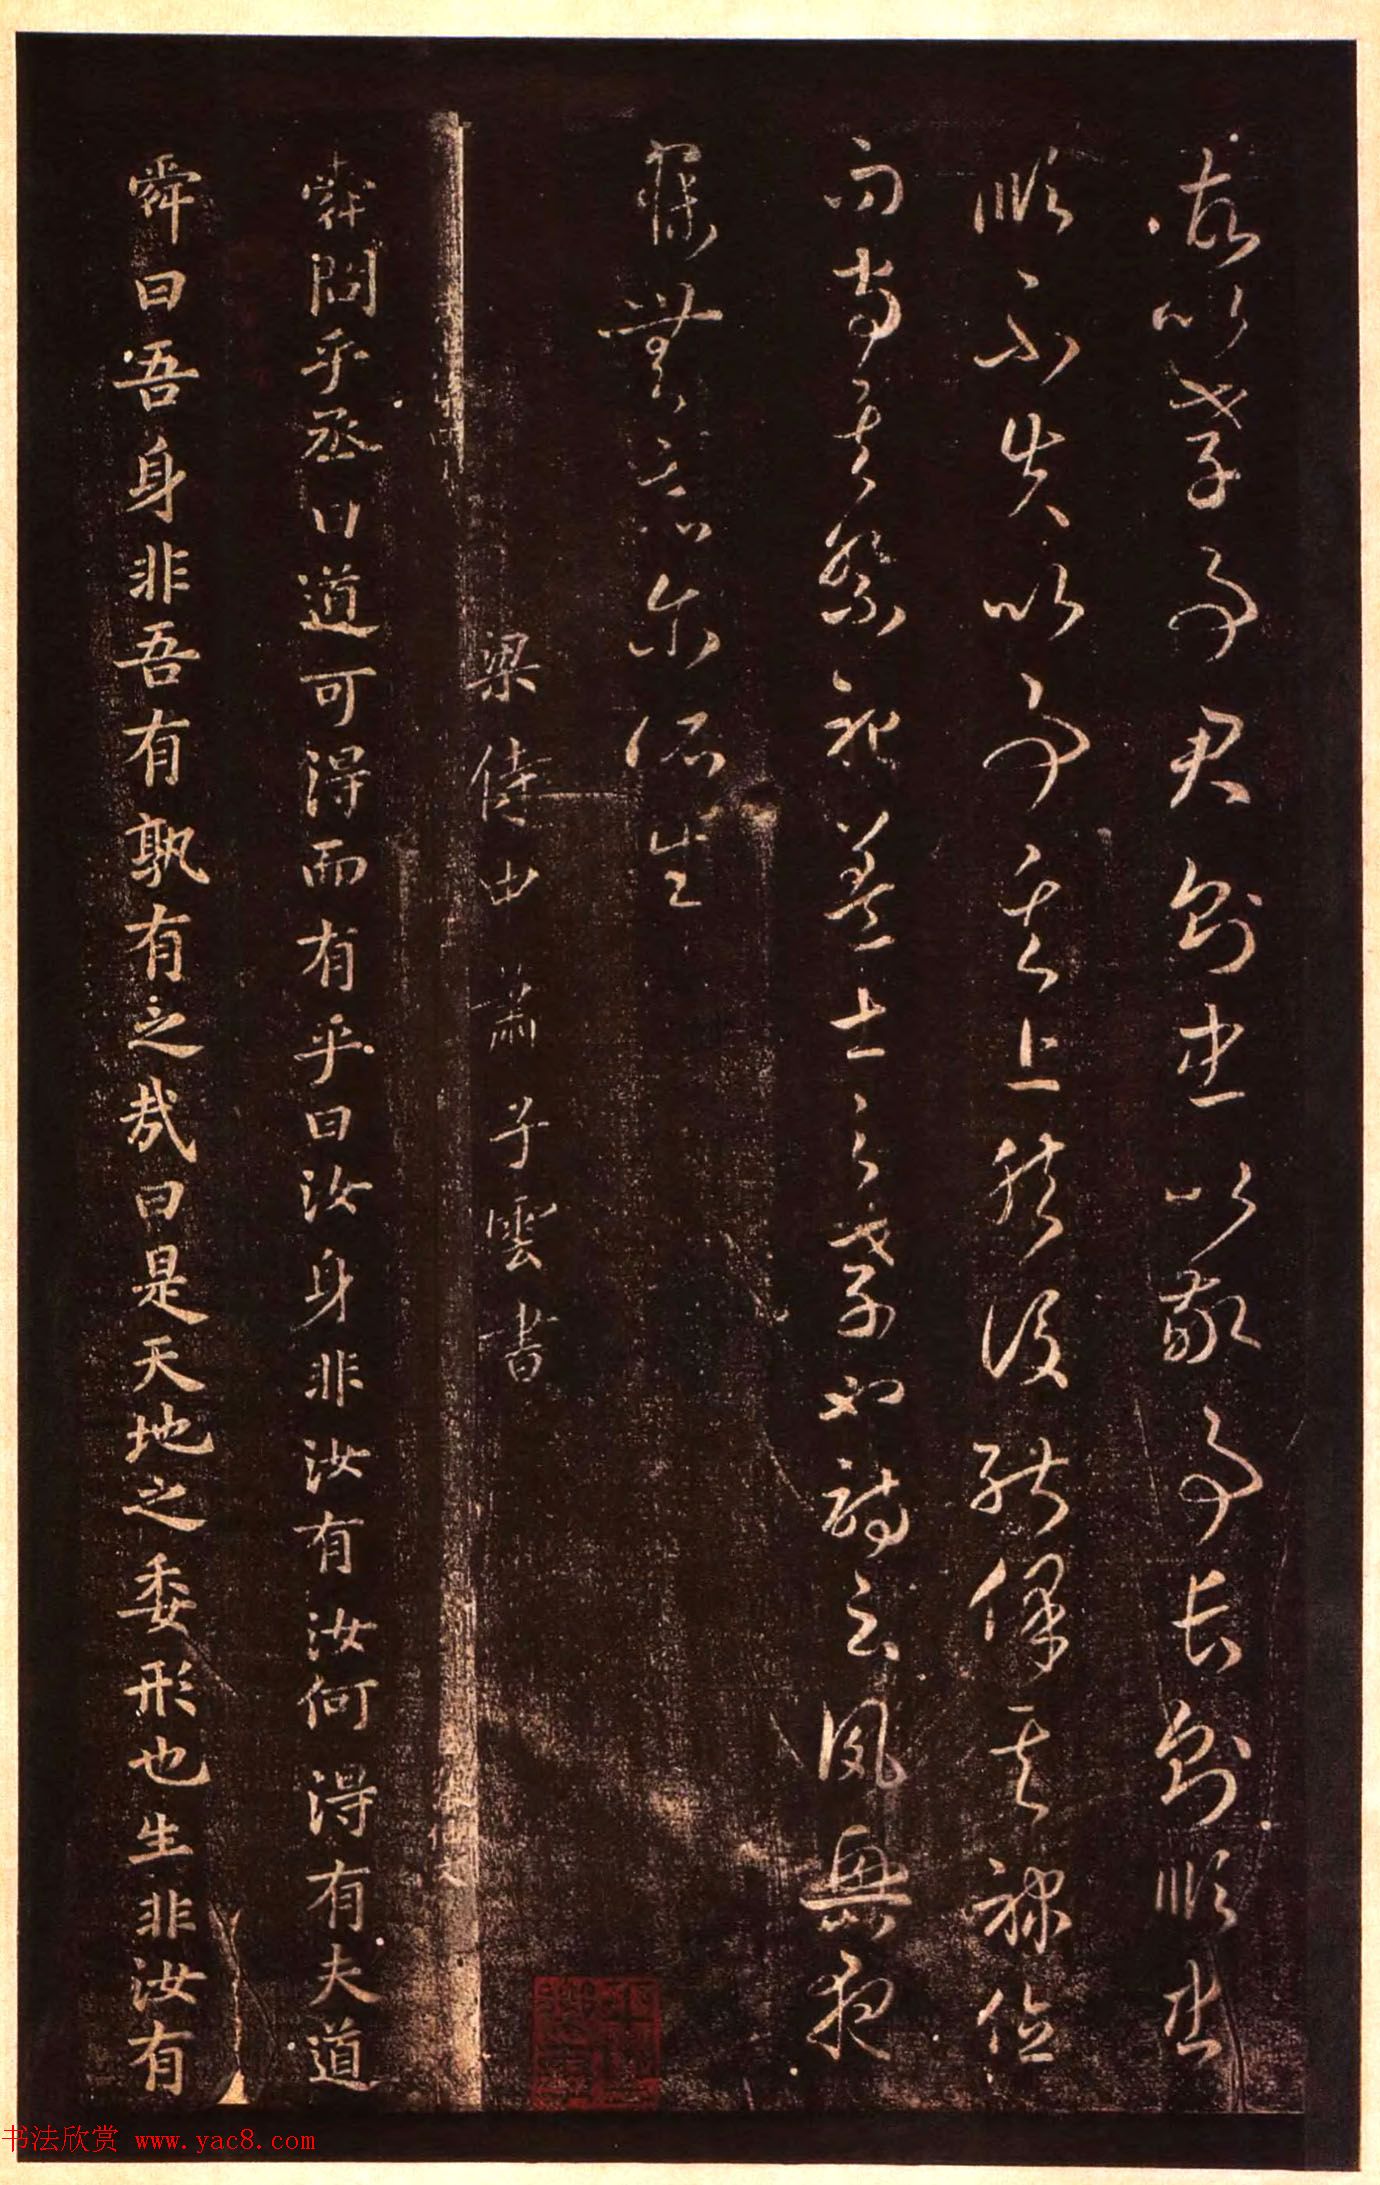 故以孝事君則忠以敬事長則順忠
順不失以事其上然後能保其祿位
而守其祭祀蓋士之孝也詩云夙興夜
寐無忝尔所生
梁侍中蕭子雲書
舜問乎丞曰道可得而有乎曰汝身非汝有汝何得有夫道
舜曰吾身非吾有孰有之哉曰是天地之委形也生非汝有
书法欣赏 www.yac8.com